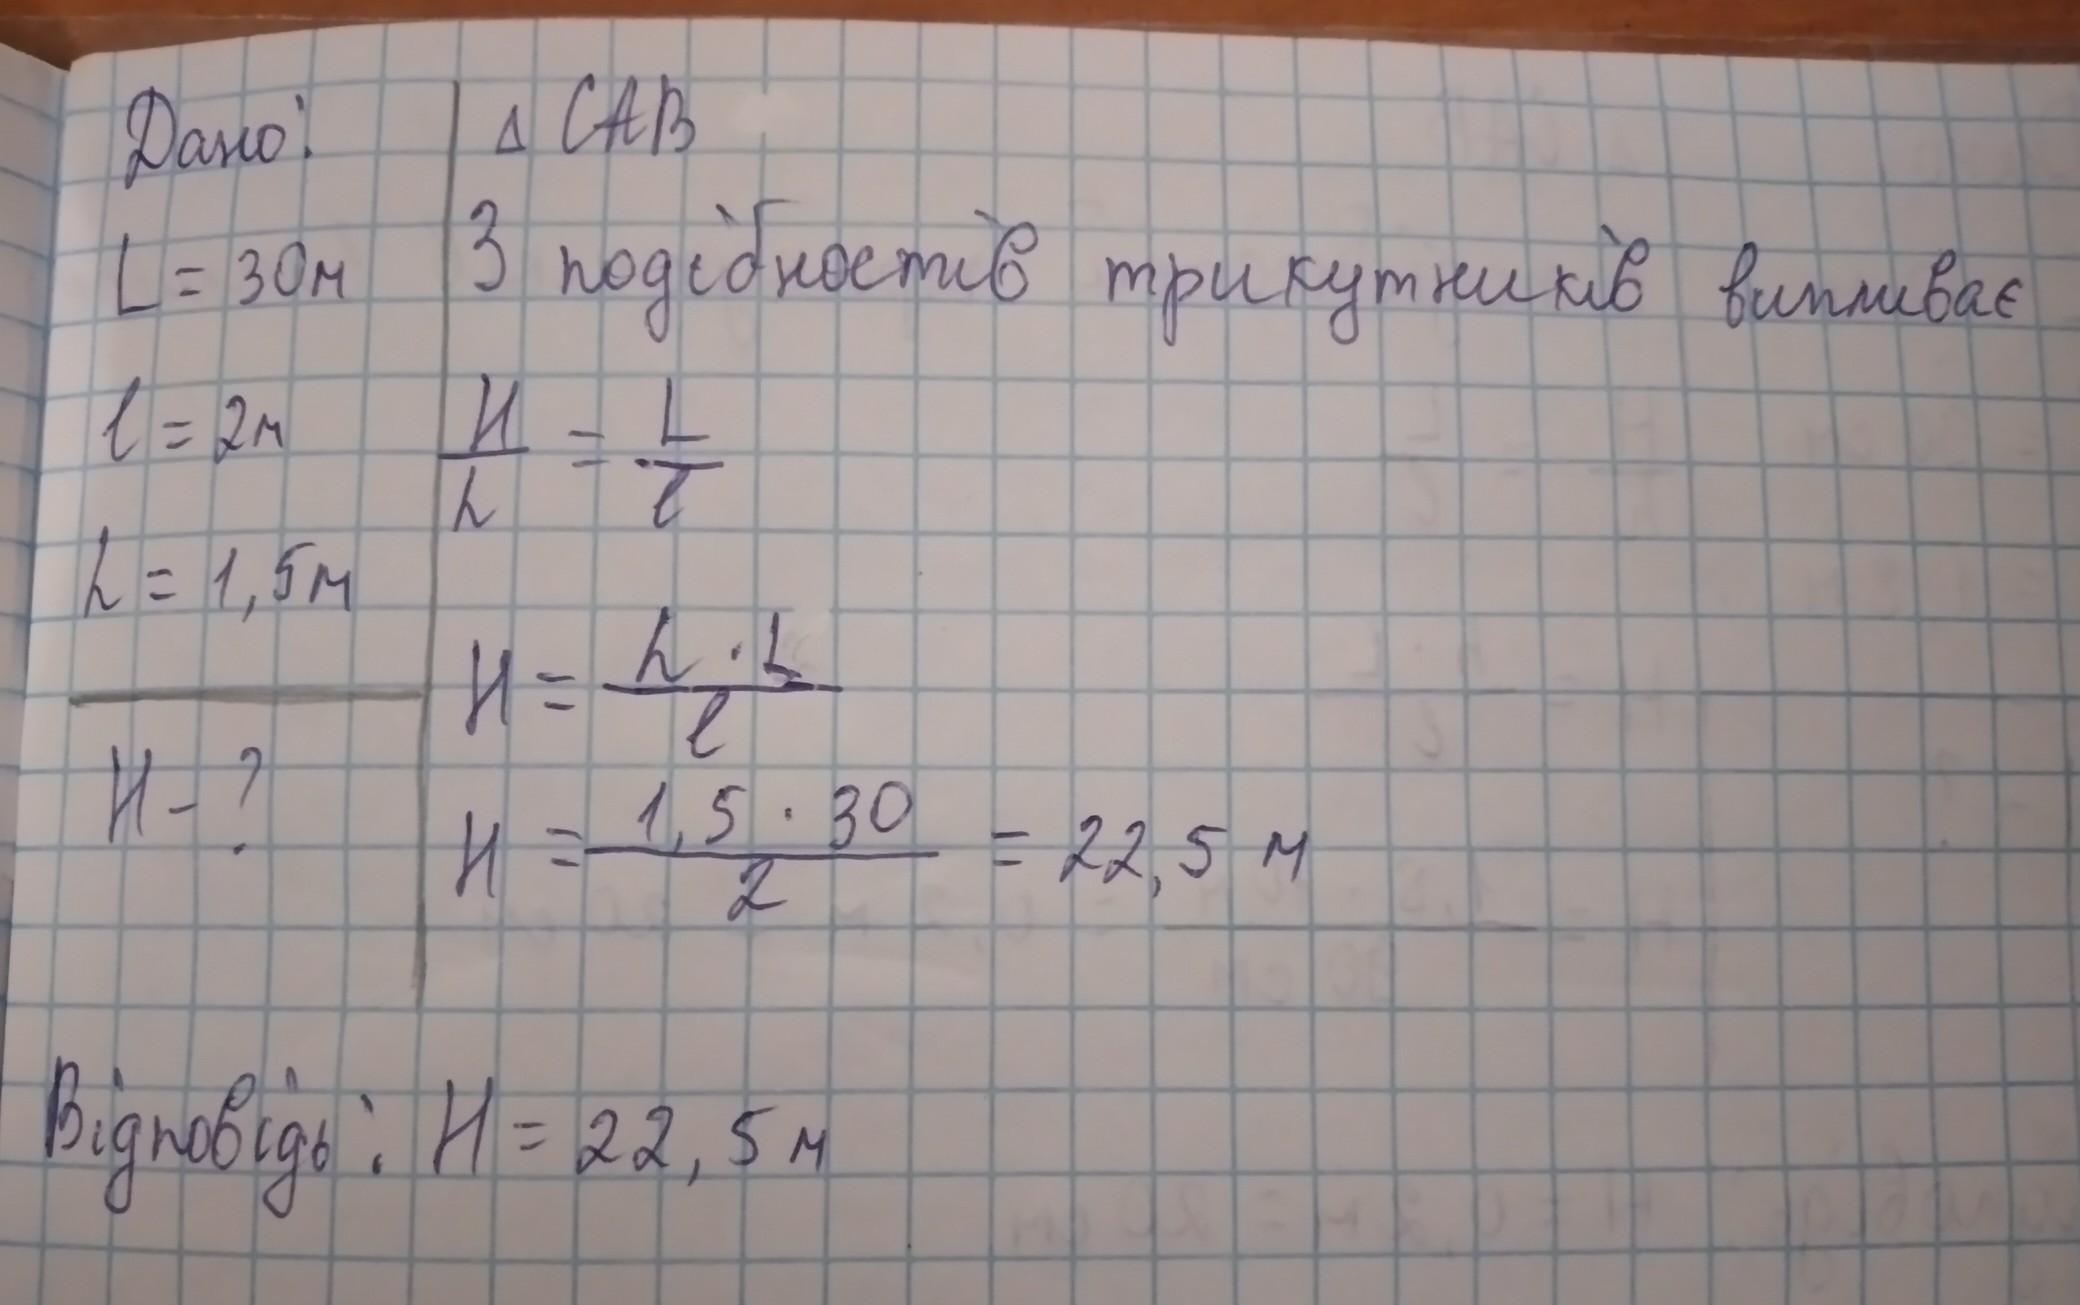 Дано:
L = 30м
l = 2м
h = 1,5м
H - ?
Δ САВ
З подібностів трикутників випливає
H/h = L/l
H = h · L / l
H = 1,5 · 30 / 2 = 22,5 м
Відповідь: H = 22,5 м